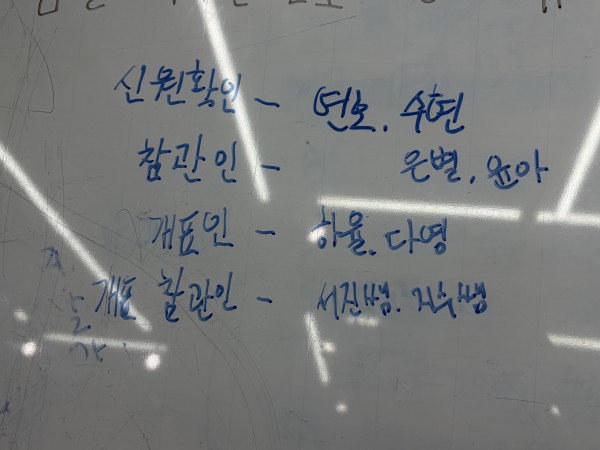 신원확인 - 연호, 수현
참관인 - 은별, 윤아
개표인 - 하율, 다영
개표 참관인 - 서진쌤, 지수쌤